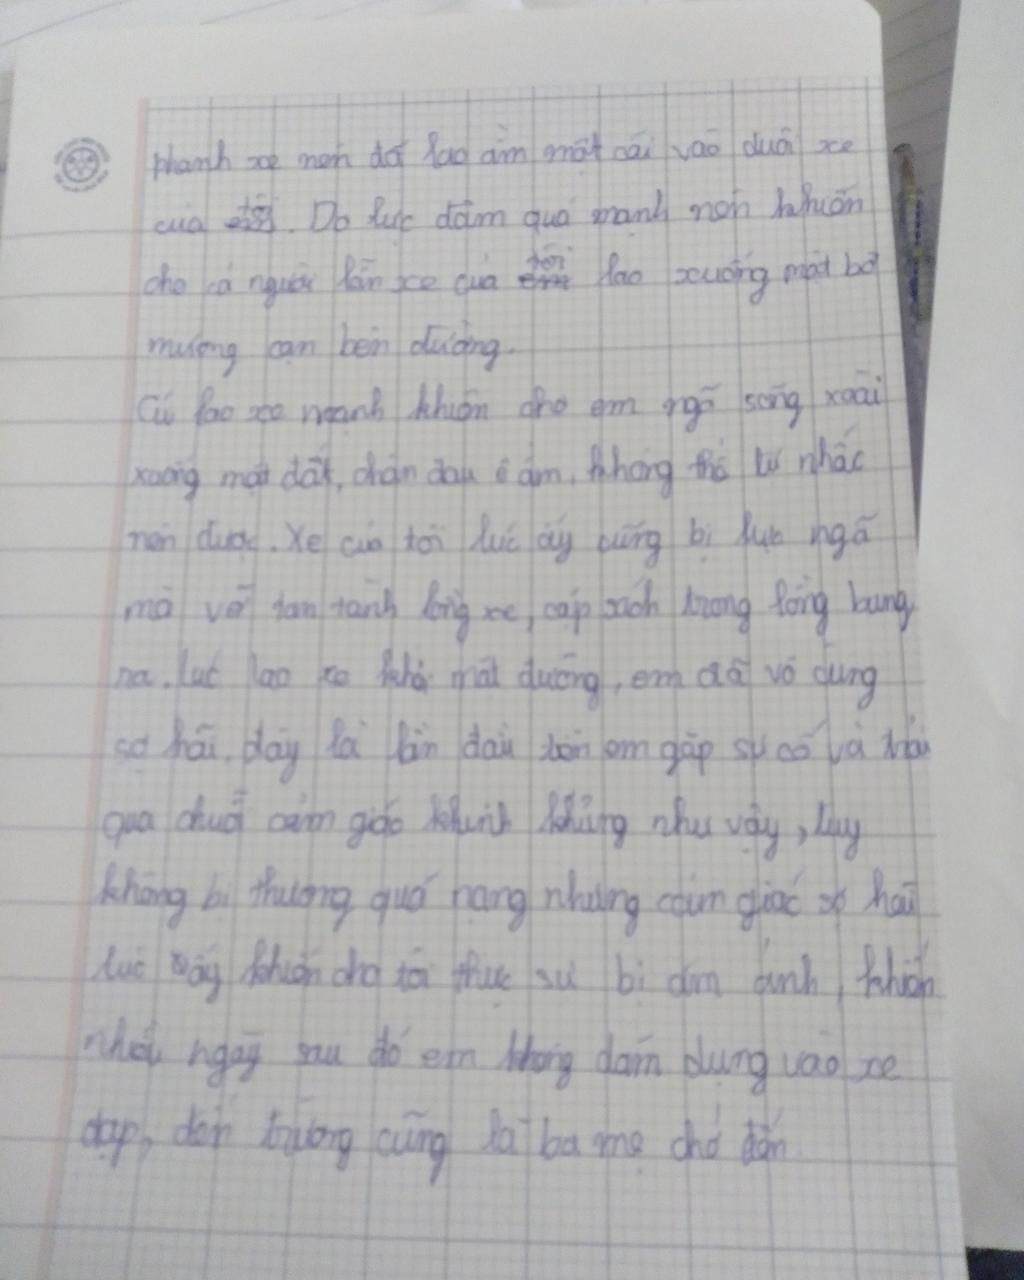 phanh xe nên đã lao ầm một cái vào đuôi xe
của tôi. Do lực đâm quá mạnh nên khiến
cho cả người lẫn xe của tôi lao xuống mặt bờ
mương cạn bên đường.
Cú lao xe mạnh khiến cho em ngã sõng xoài
xuống mặt đất, chân đau ê ẩm, không thể tự nhấc
nên được. Xe của tôi lúc ấy cũng bị lực ngã
mà vỡ tan tành lồng xe, cặp sách trong lồng bung
ra. Lúc lao xe khỏi mặt đường, em đã vô cùng
sợ hãi, đây là lần đầu tiên em gặp sự cố và trải
qua chuỗi cảm giác khủng khủng như vậy, tuy
không bị thương quá nặng nhưng cảm giác sợ hãi
lúc ấy khiến cho tôi thực sự bị ám ảnh, khiến
nhiều ngày sau đó em không dám đụng vào xe
đạp, đến trường cũng là ba mẹ chở đến.